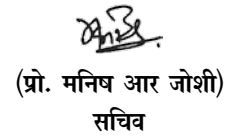 (प्रो. मनिष आर जोशी)
सचिव